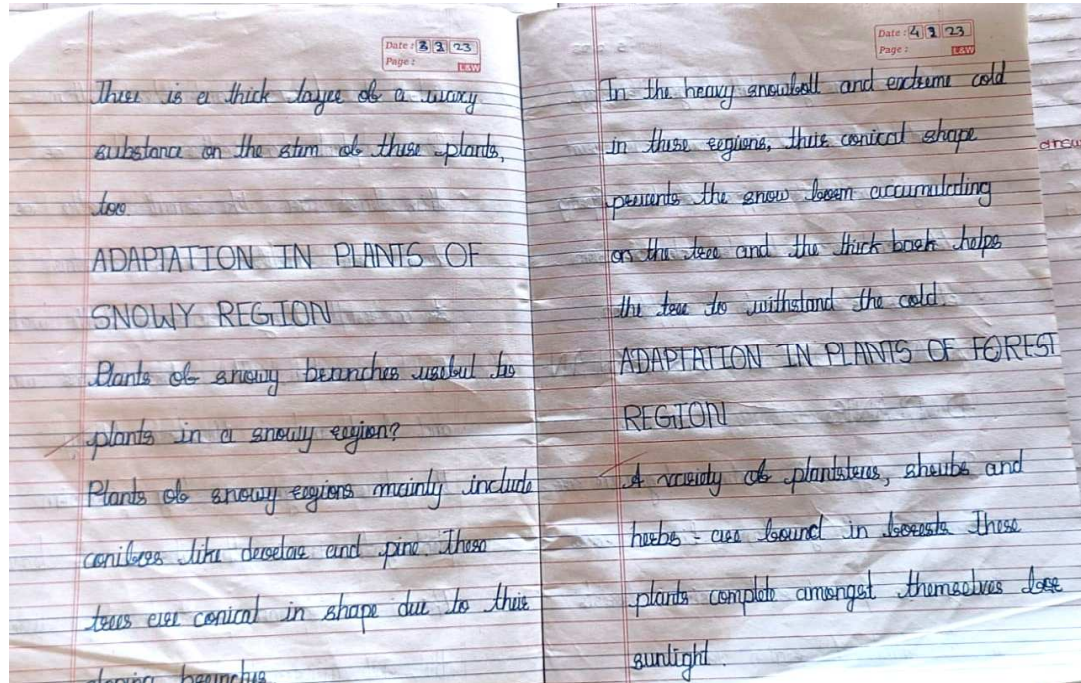 Date: 3 2 23
Page:
L&W
There is a thick layer of a waxy
substance on the stem of these plants,
too.
ADAPTATION IN PLANTS OF
SNOWY REGION
Plants of snowy branches useful to
plants in a snowy region?
Plants of snowy regions mainly include
conifers like deodar and pine These
trees are conical in shape due to their
sloping branches
Date: 4 2 23
Page:
L&W
In the heavy snowfall and extreme cold
in these regions, their conical shape
prevents the snow from accumulating
on the tree and the thick bark helps
the tree to withstand the cold.
ADAPTATION IN PLANTS OF FOREST
REGION
A variety of plantstrees, shrubs and
herbs - are found in forests These
plants complete amongst themselves for
sunlight.